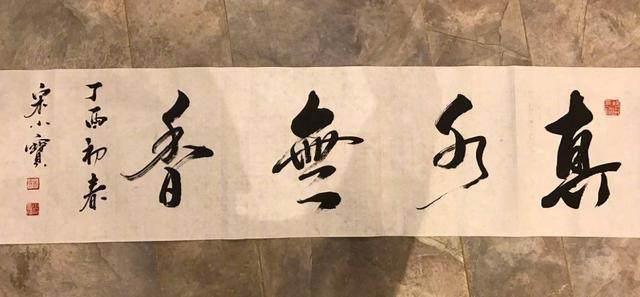 真水無香
丁酉初春
宋小寶